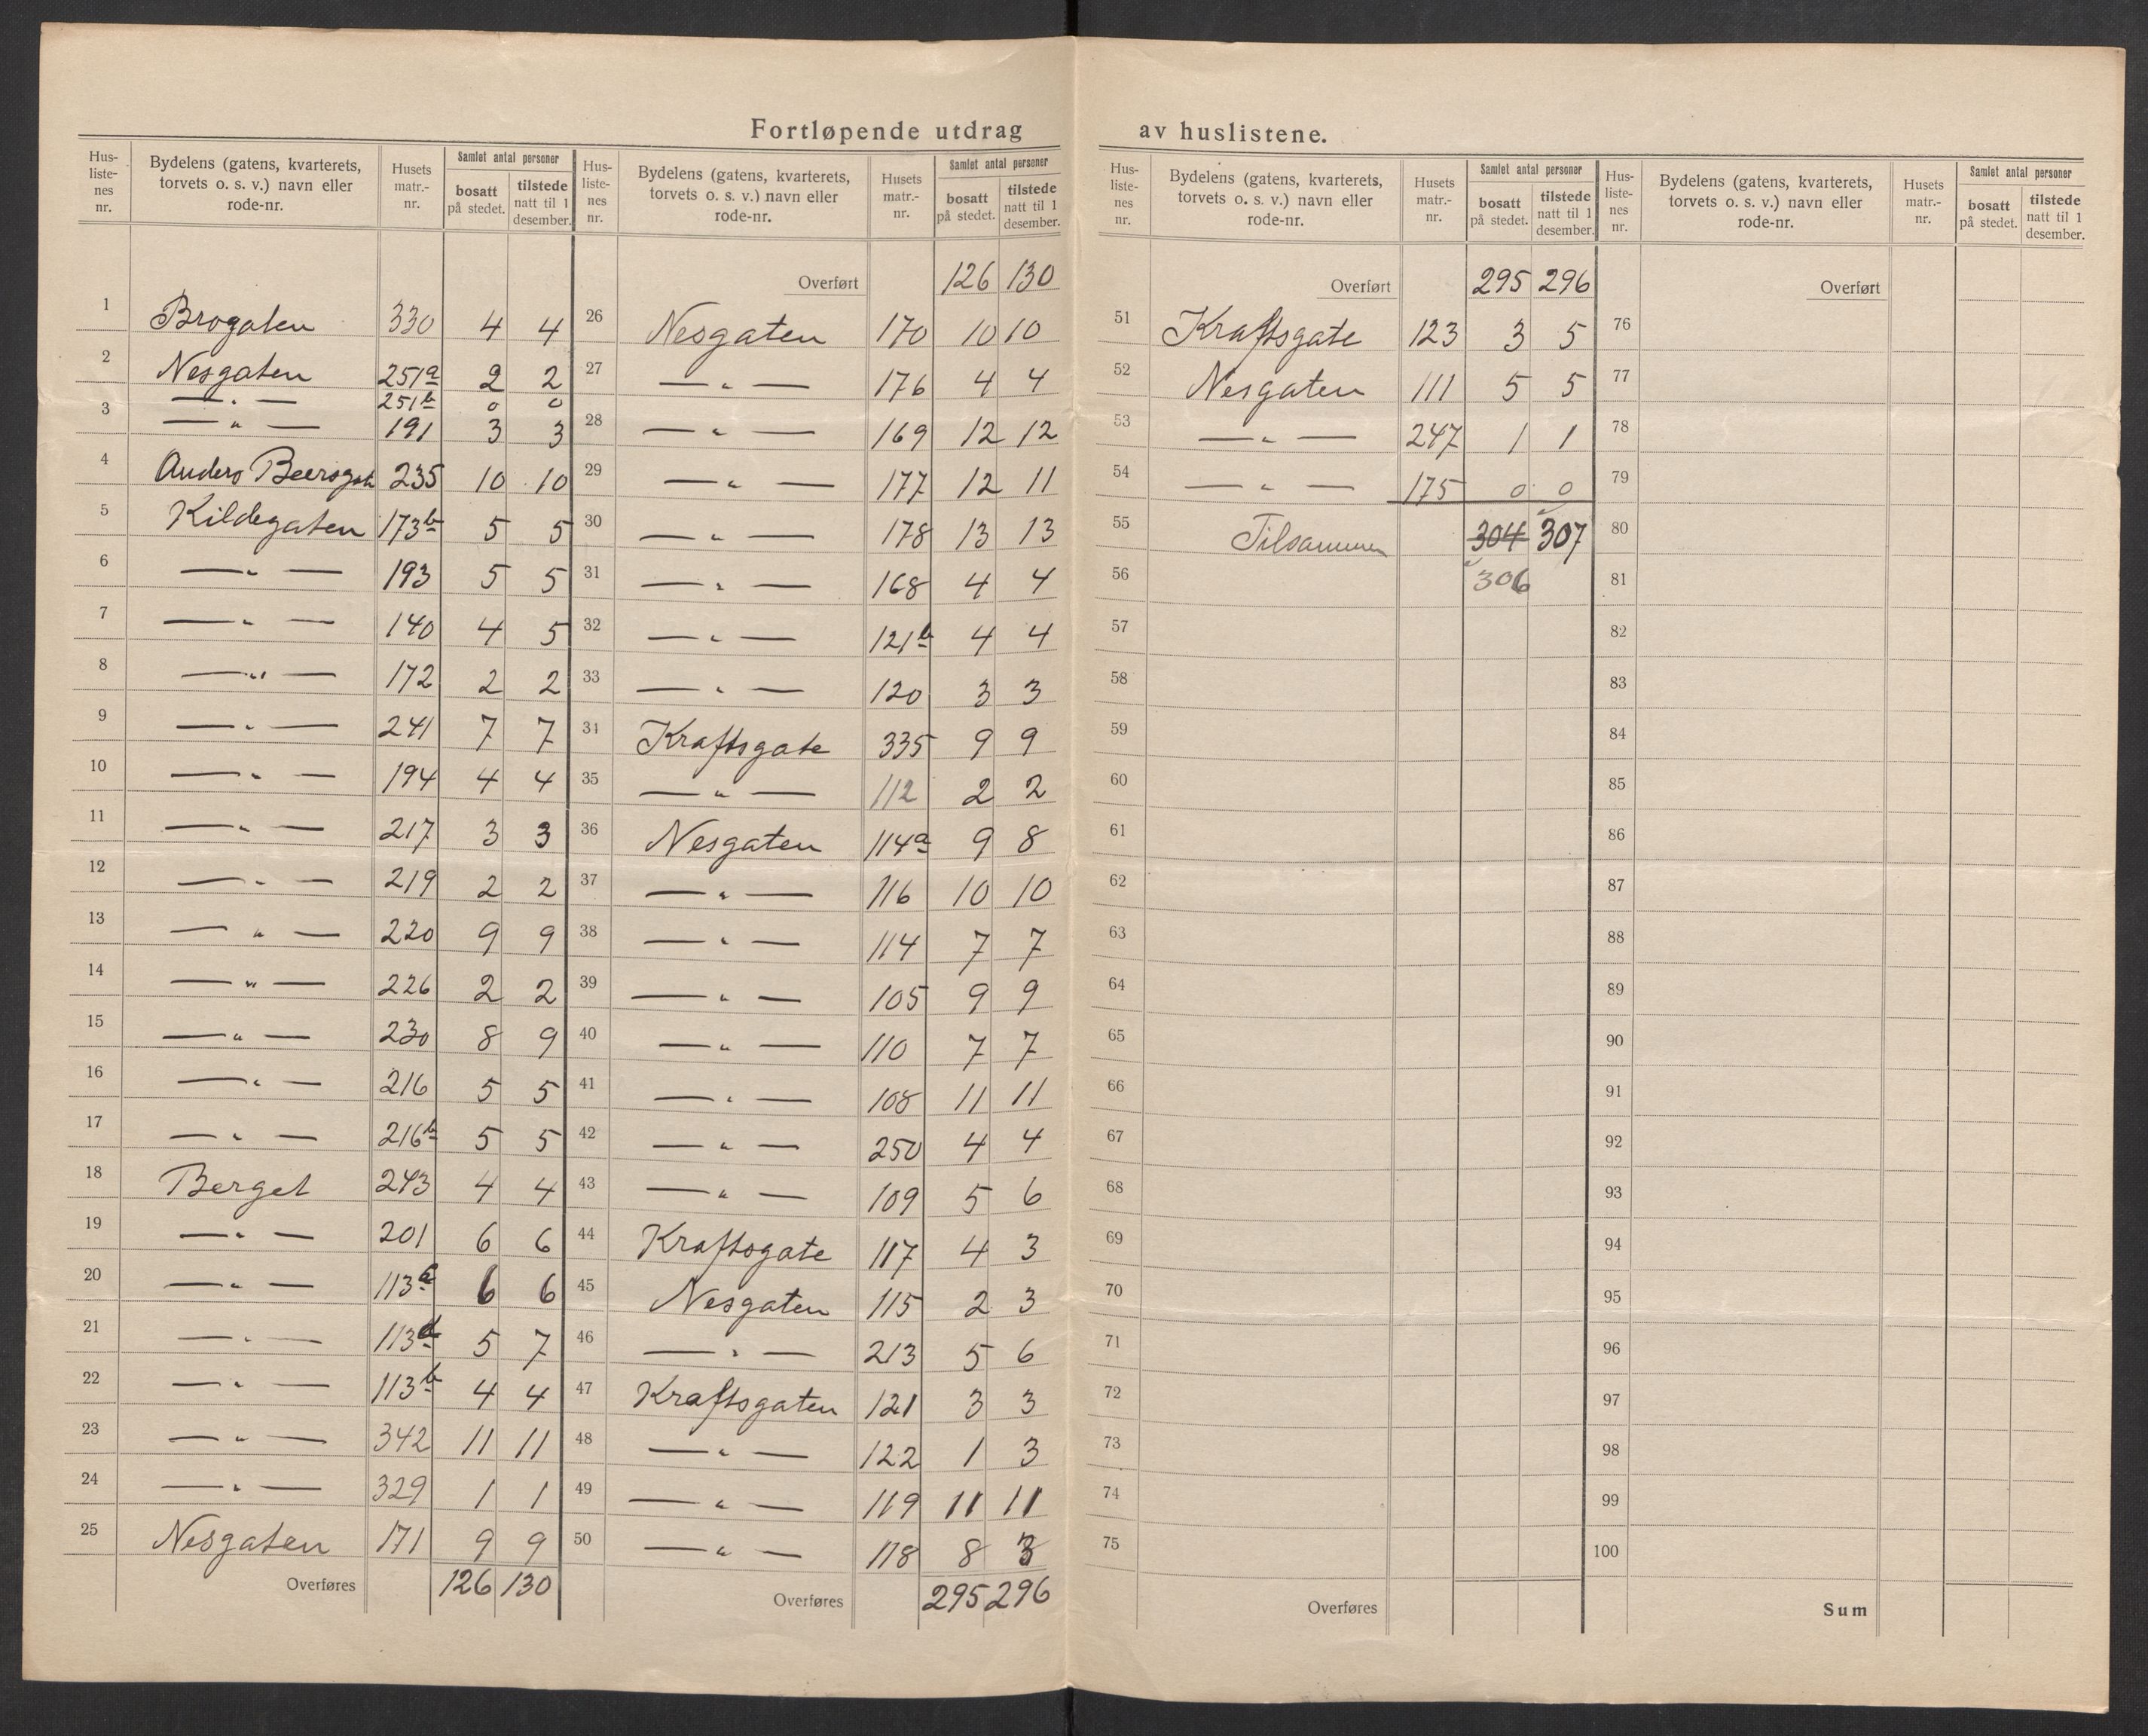 Fortløpende utdrag av huslistene.
Hus-listenes nr. | Bydelens (gatens, kvarterets, torvets o. s. v.) navn eller rode-nr. | Husets matr.-nr. | Samlet antal personer bosatt på stedet. | tilstede natt til 1 desember.
1 Brogaten 330 4 4
2 Nesgaten 251a 2 2
— " — 251b 0 0
3 — " — 191 3 3
4 Anders Beersgate 235 10 10
5 Kildegaten 173b 5 5
6 — " — 193 5 5
7 — " — 140 4 5
8 — " — 172 2 2
9 — " — 241 7 7
10 — " — 194 4 4
11 — " — 217 3 3
12 — " — 219 2 2
13 — " — 220 9 9
14 — " — 226 2 2
15 — " — 230 8 9
16 — " — 216 5 5
17 — " — 216b 5 5
18 Berget 243 4 4
19 — " — 201 6 6
20 — " — 113 6 6
21 — " — 113d 5 7
22 — " — 113b 4 4
23 — " — 342 11 11
24 — " — 329 1 1
25 Nesgaten 171 9 9
Overføres 126 130
Hus-listenes nr. | Bydelens (gatens, kvarterets, torvets o. s. v.) navn eller rode-nr. | Husets matr.-nr. | Samlet antal personer bosatt på stedet. | tilstede natt til 1 desember.
Overført 126 130
26 Nesgaten 170 10 10
27 — " — 176 4 4
28 — " — 169 12 12
29 — " — 177 12 11
30 — " — 178 13 13
31 — " — 168 4 4
32 — " — 121b 4 4
33 — " — 120 3 3
34 Kraftsgate 335 9 9
35 — " — 112 2 2
36 Nesgaten 114a 9 8
37 — " — 116 10 10
38 — " — 114 7 7
39 — " — 105 9 9
40 — " — 110 7 7
41 — " — 108 11 11
42 — " — 250 4 4
43 — " — 109 5 6
44 Kraftsgate 117 4 3
45 Nesgaten 115 2 3
46 — " — 213 5 6
47 Kraftsgaten 121 3 3
48 — " — 122 1 3
49 — " — 119 11 11
50 — " — 118 8 3
Overføres 295 296
Hus-listenes nr. | Bydelens (gatens, kvarterets, torvets o. s. v.) navn eller rode-nr. | Husets matr.-nr. | Samlet antal personer bosatt på stedet. | tilstede natt til 1 desember.
Overført 295 296
51 Kraftsgate 123 3 5
52 Nesgaten 111 5 5
53 — " — 247 1 1
54 — " — 175 0 0
55 Tilsammen 304 307
56 306
57
58
59
60
61
62
63
64
65
66
67
68
69
70
71
72
73
74
75
Overføres
Hus-listenes nr. | Bydelens (gatens, kvarterets, torvets o. s. v.) navn eller rode-nr. | Husets matr.-nr. | Samlet antal personer bosatt på stedet. | tilstede natt til 1 desember.
Overført
76
77
78
79
80
81
82
83
84
85
86
87
88
89
90
91
92
93
94
95
96
97
98
99
100
Sum